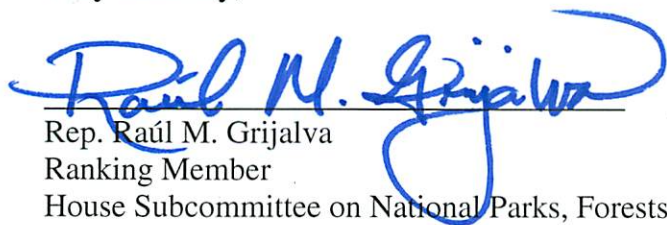 Raúl M. Grijalva
Rep. Raúl M. Grijalva
Ranking Member
House Subcommittee on National Parks, Forests